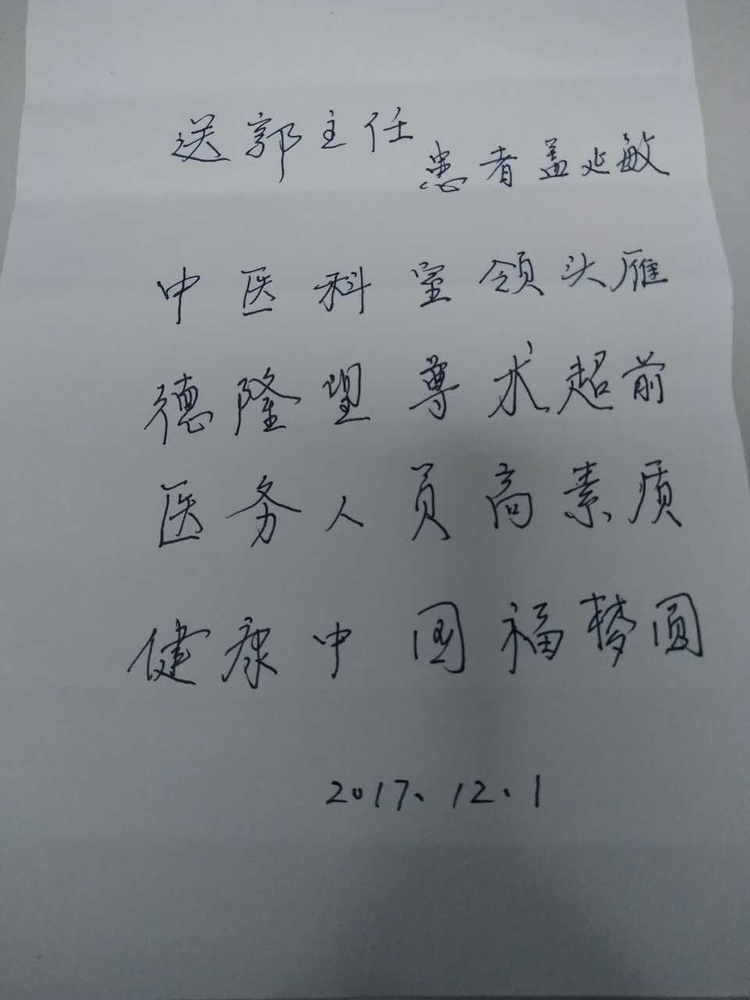 送郭主任
患者盖延敏
中医科室领头雁
德隆望尊术超前
医务人员高素质
健康中国福梦圆
2017.12.1